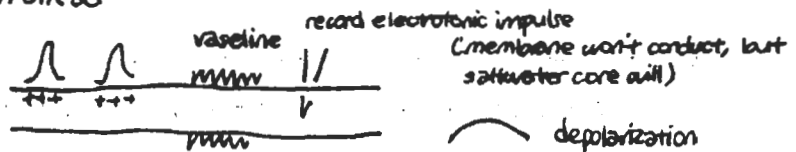 record electrotonic impulse
vaseline
(membrane won't conduct, but
saltwater core will)
+++ +++
depolarization